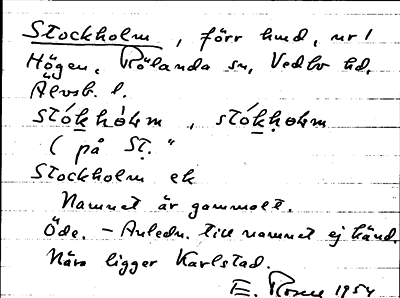 Stockholm, förr lund, ur /
Högen, Rölanda sn, Vedbo hd,
Älvsb. l.
stókhòlm, stókholm
( på St."
Stockholm ek
Namnet är gammalt.
Öde. – Anledn. till namnet ej känd.
Nära ligger Karlstad.
E. 1954